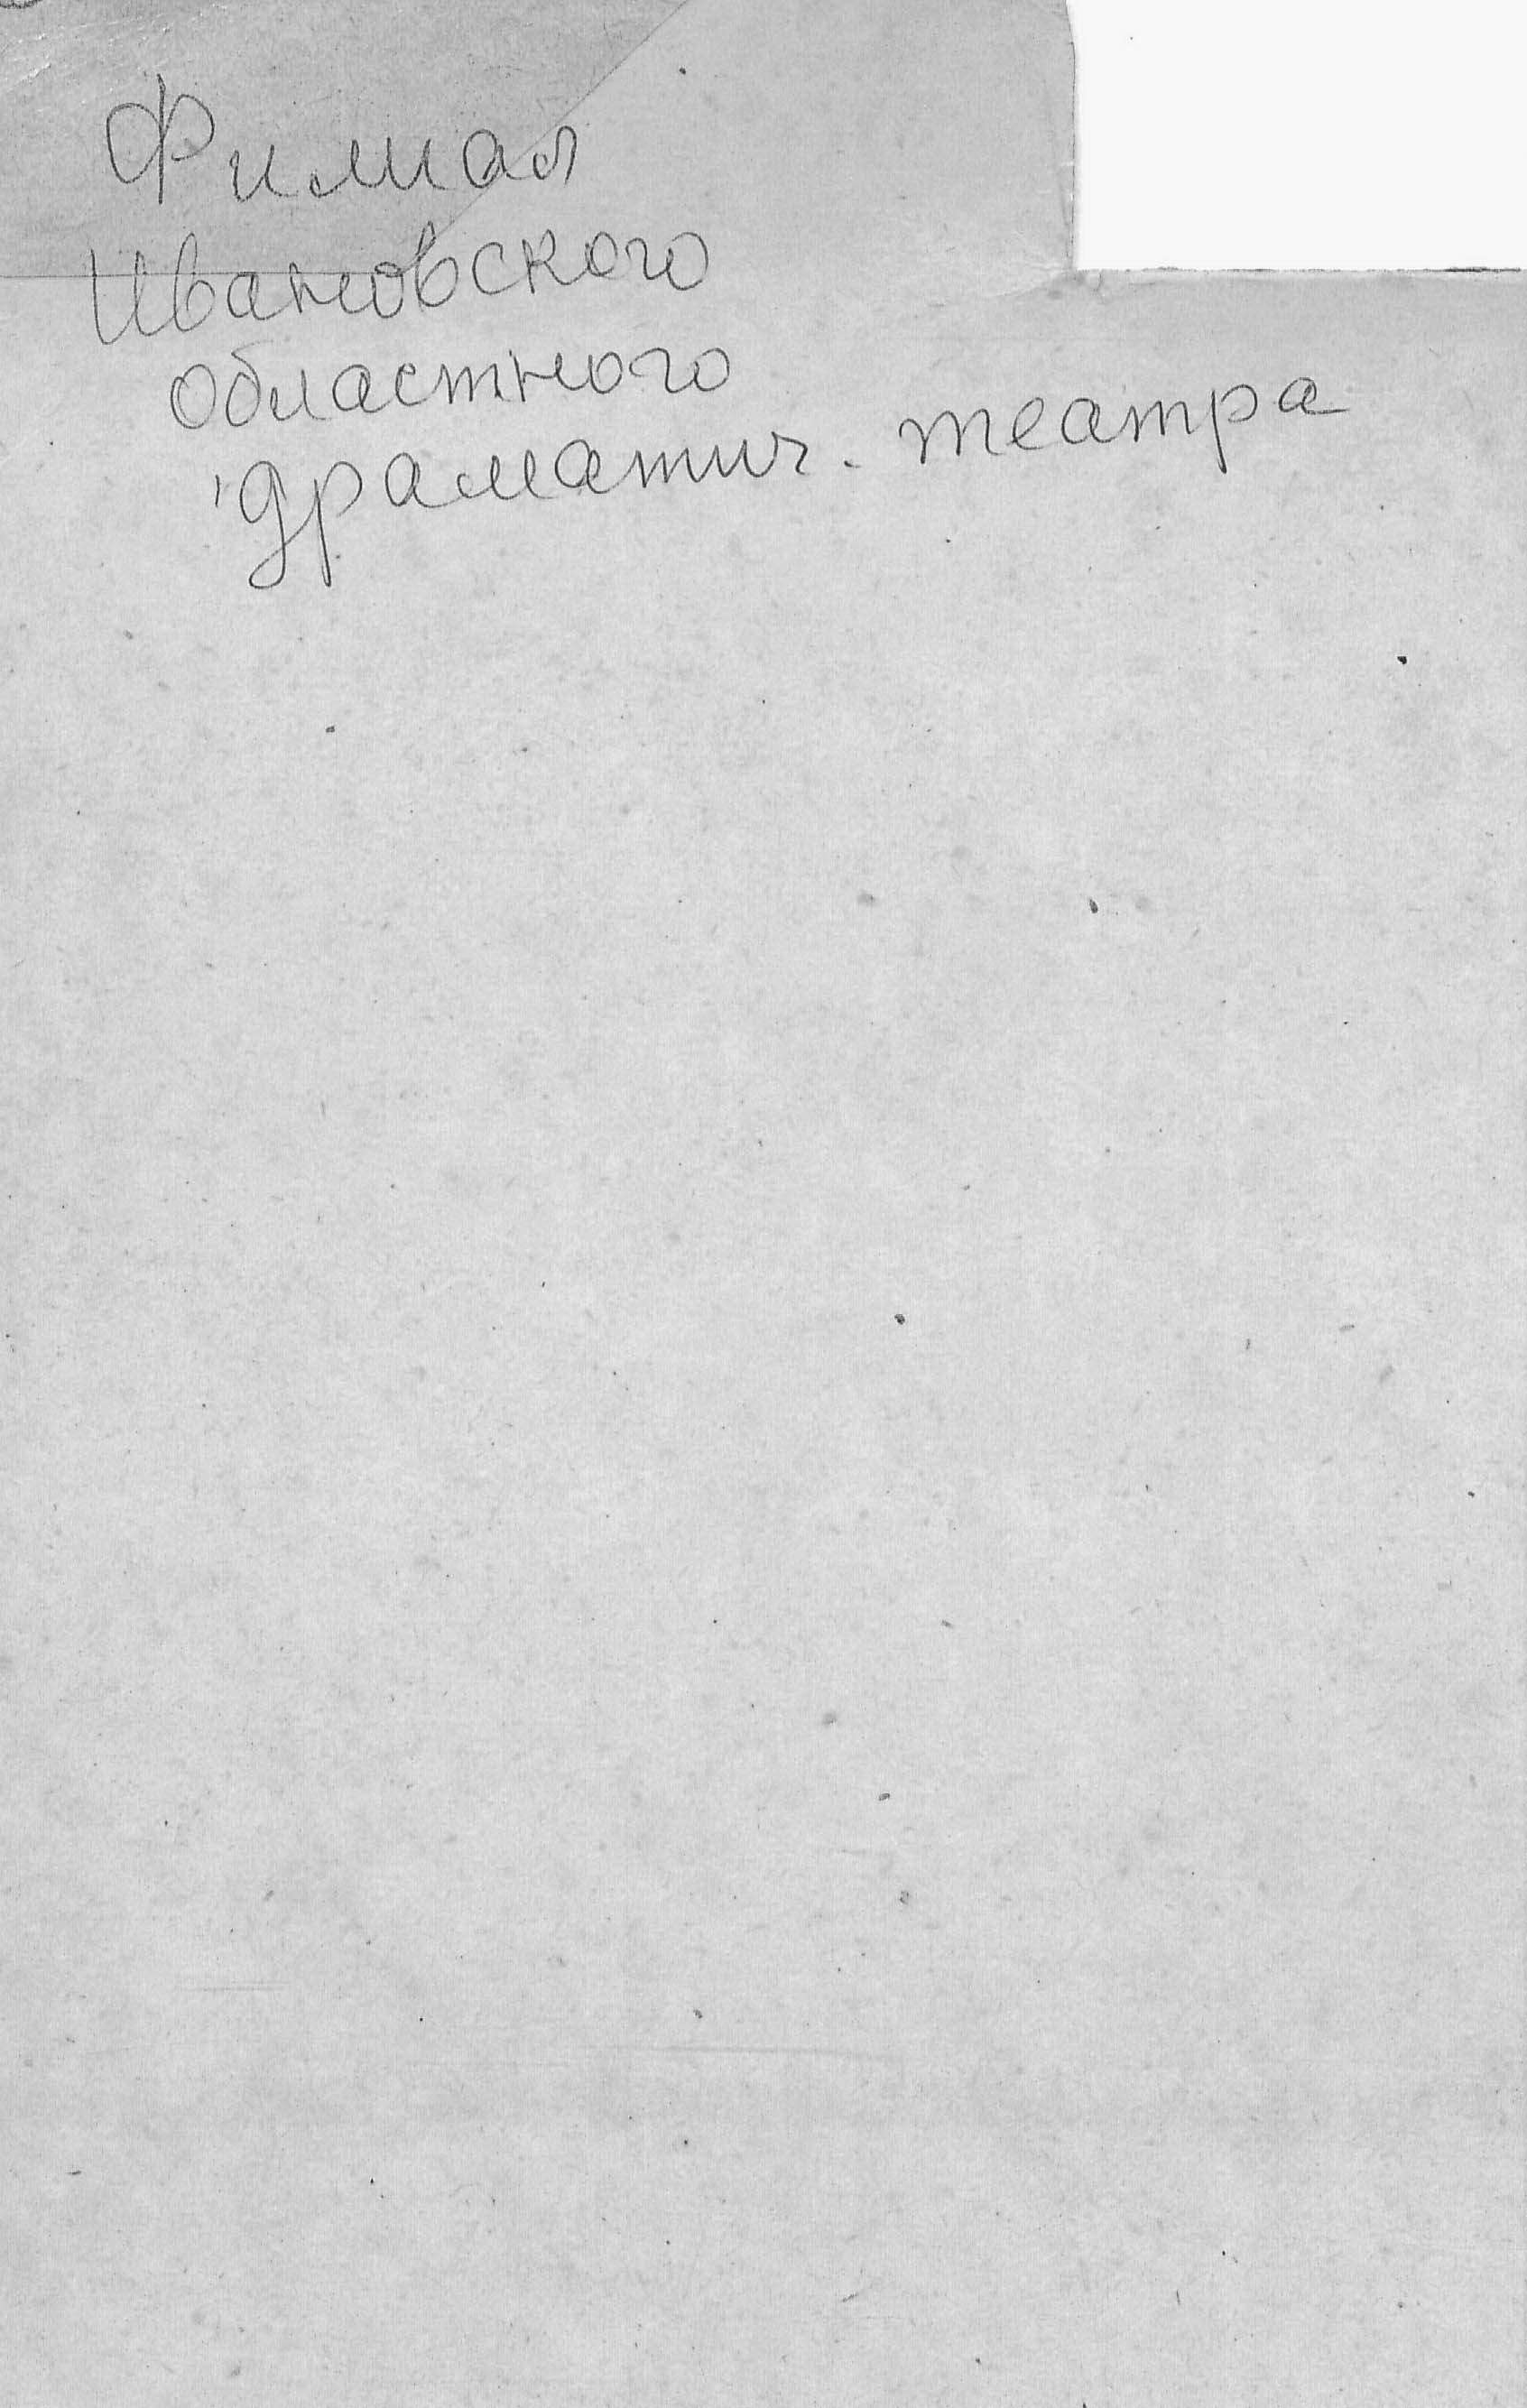 Филиал
Ивановского
областного
драматич. театра